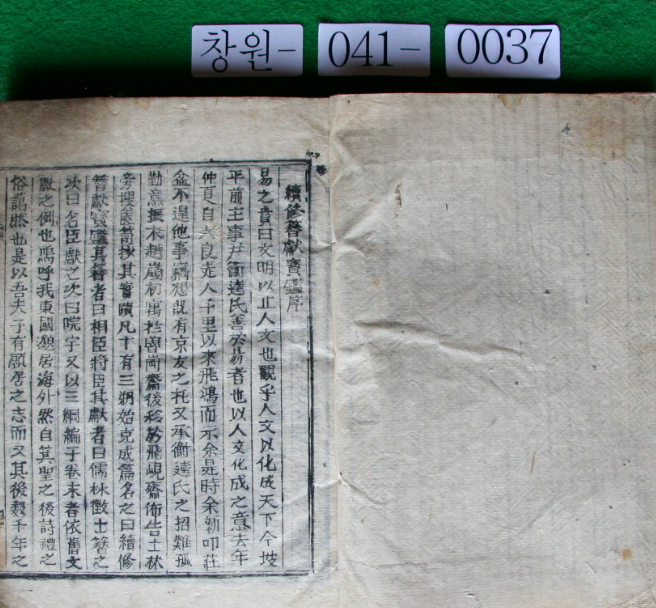 창원- 041- 0037
續修簪獻寶鑑序
易之賁曰文明以止人文也觀乎人文以化成天下今坡
平前主事尹衡逵氏善於易者也以人文化成之意去年
仲夏自良走人千里以來飛鴻而示余是時余新叩莊
盆不遑他事竊想旣有京友之托又承衡逵氏之招難孤
勤意撥冗赴嶺初寓於尙齋後移於飛峴齋佈告士林
旁搜廣蒐按其實蹟凡十有三朔始克成篇名之曰續修
簪獻寶鑑其簪者曰相臣將臣其獻者曰儒林徵士簪之
次曰名臣獻之次曰院宇又以三綱編于卷末者依舊文
獻之例也嗚呼我東國邈居海外然自箕聖之後詩禮之
俗藹然也是以吾夫子有願居之志而又其後數千年之